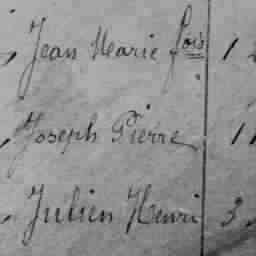 , Jean Marie fois 1
, Joseph Pierre 11
, Julien Henri 3